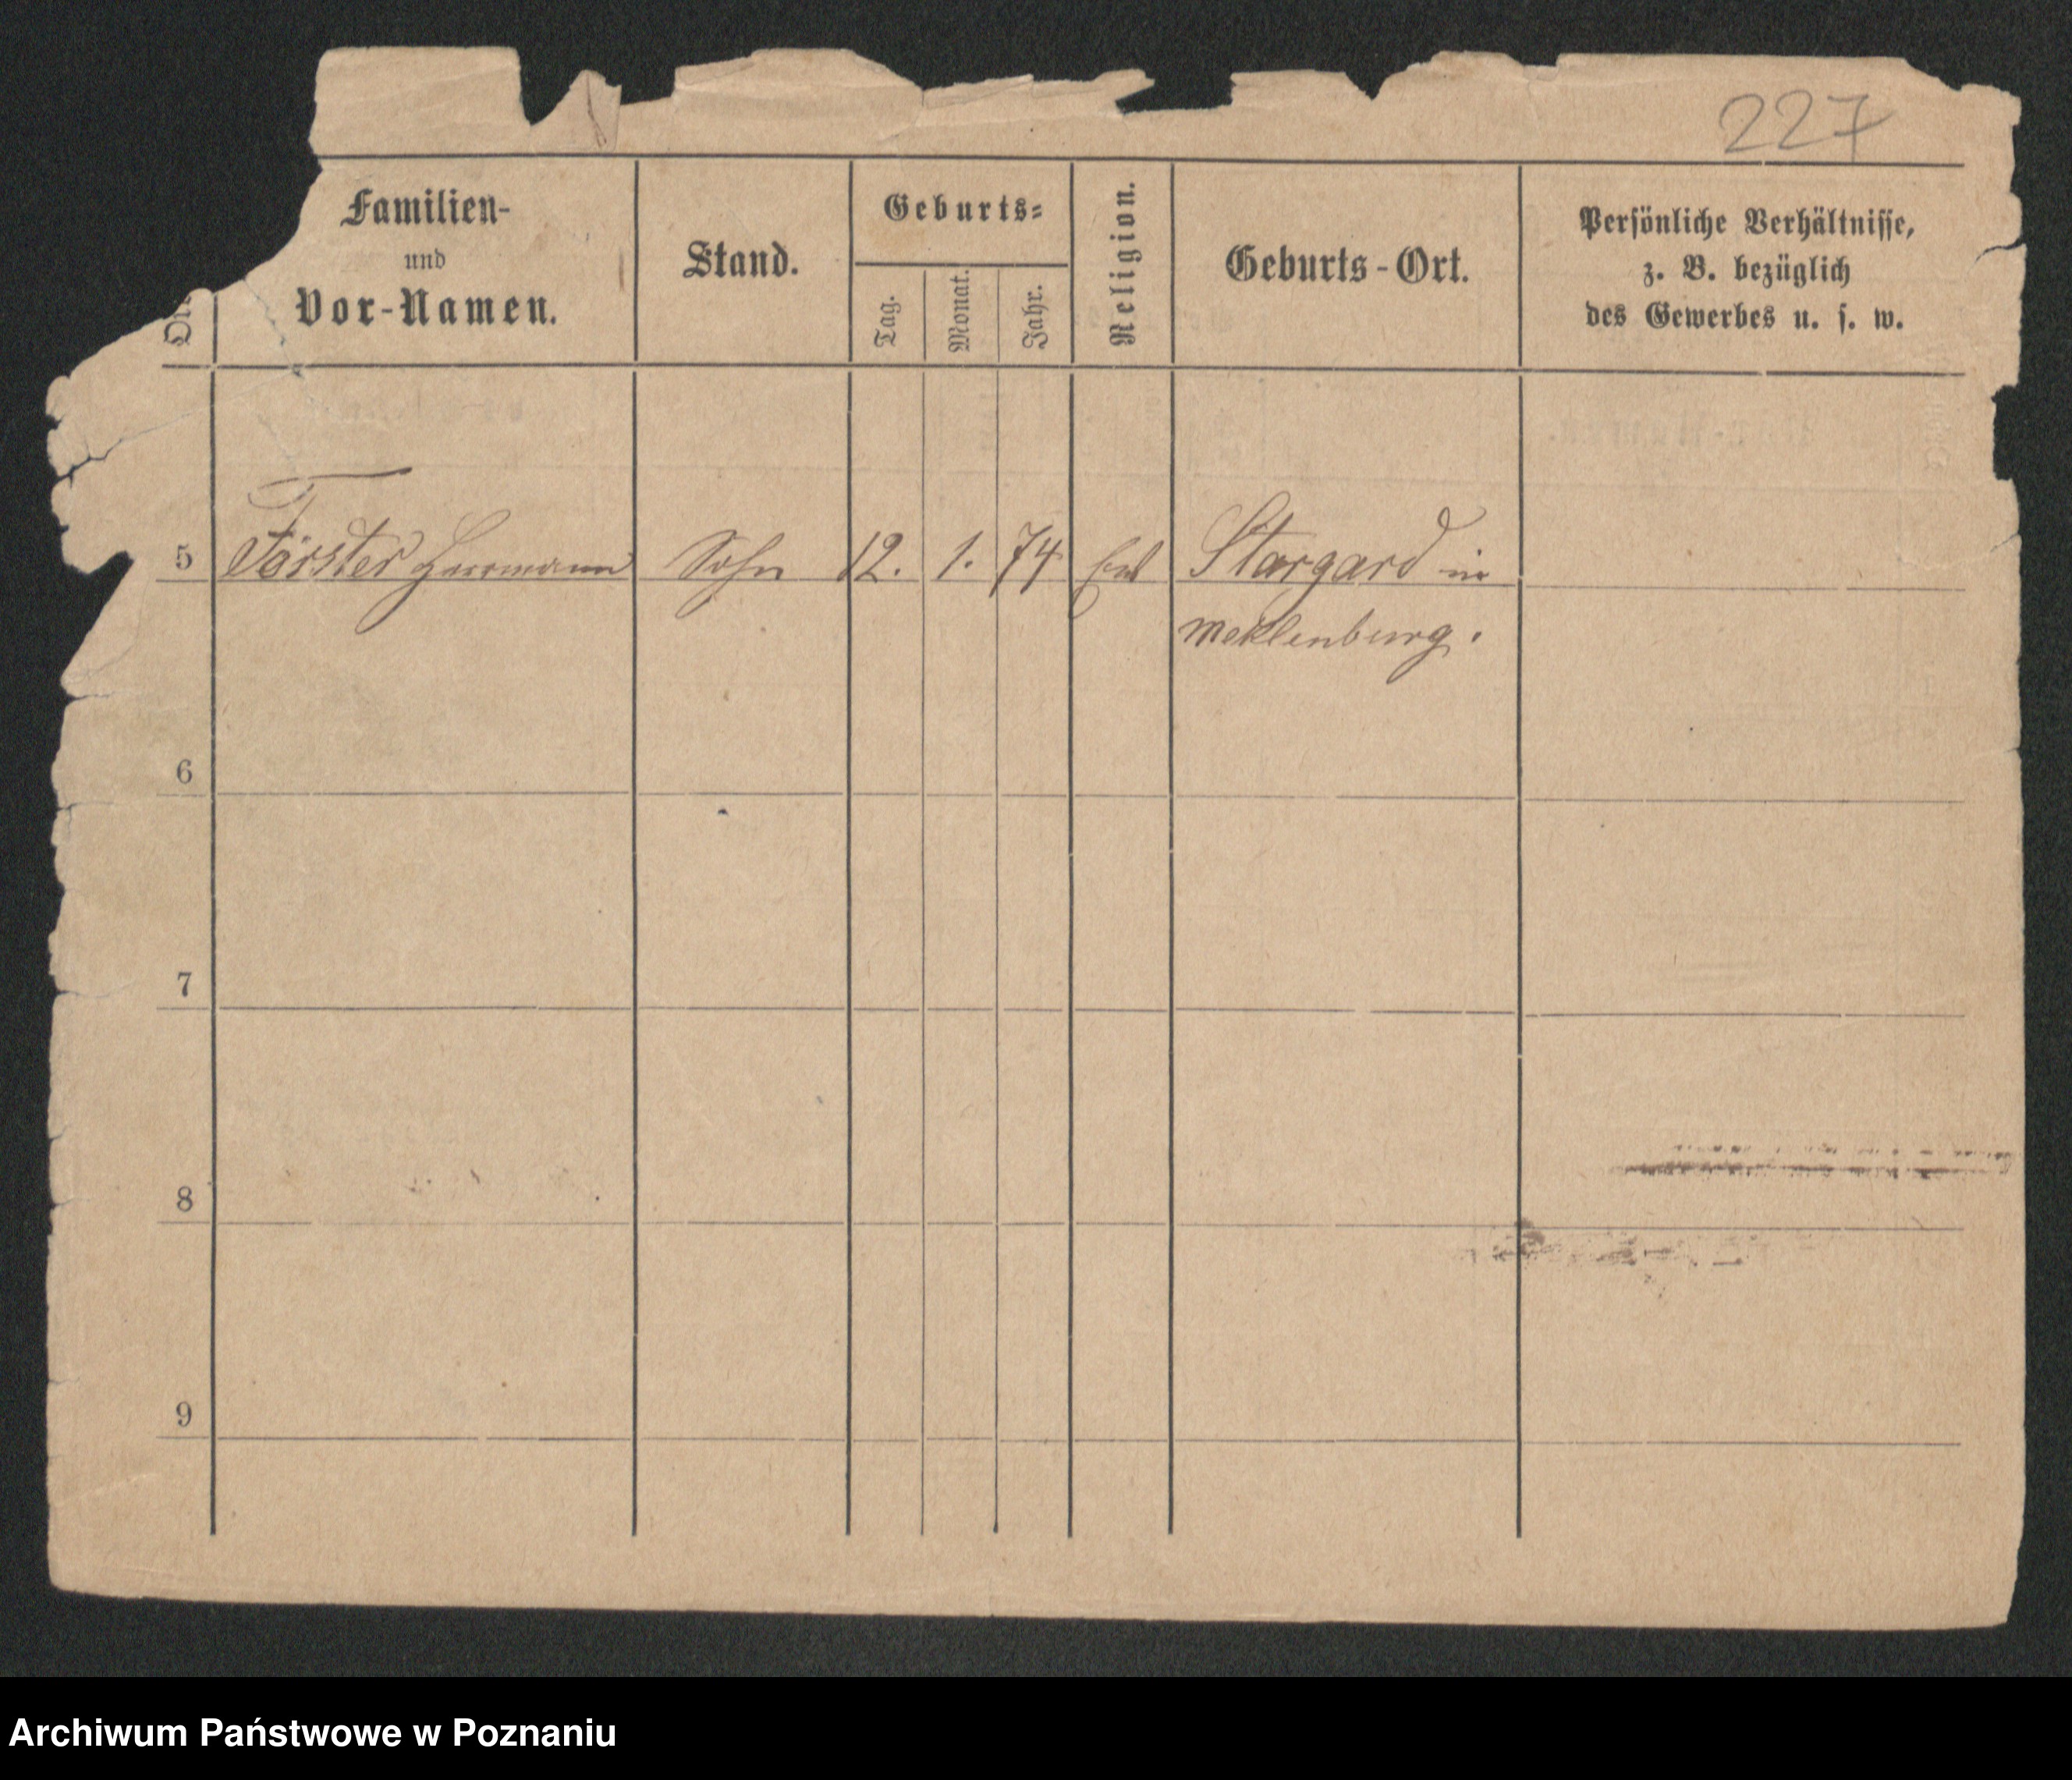 227
Familien-
und
Vor-Namen.
Stand.
Geburts-
Tag.
Monat.
Jahr.
Religion.
Geburts-Ort.
Persönliche Verhältnisse,
z. B. bezüglich
des Gewerbes u. s. w.
5 Förster Herrmann Sohn 12. 1. 74 Stargard in
Meklenburg.
6
7
8
9
Archiwum Państwowe w Poznaniu